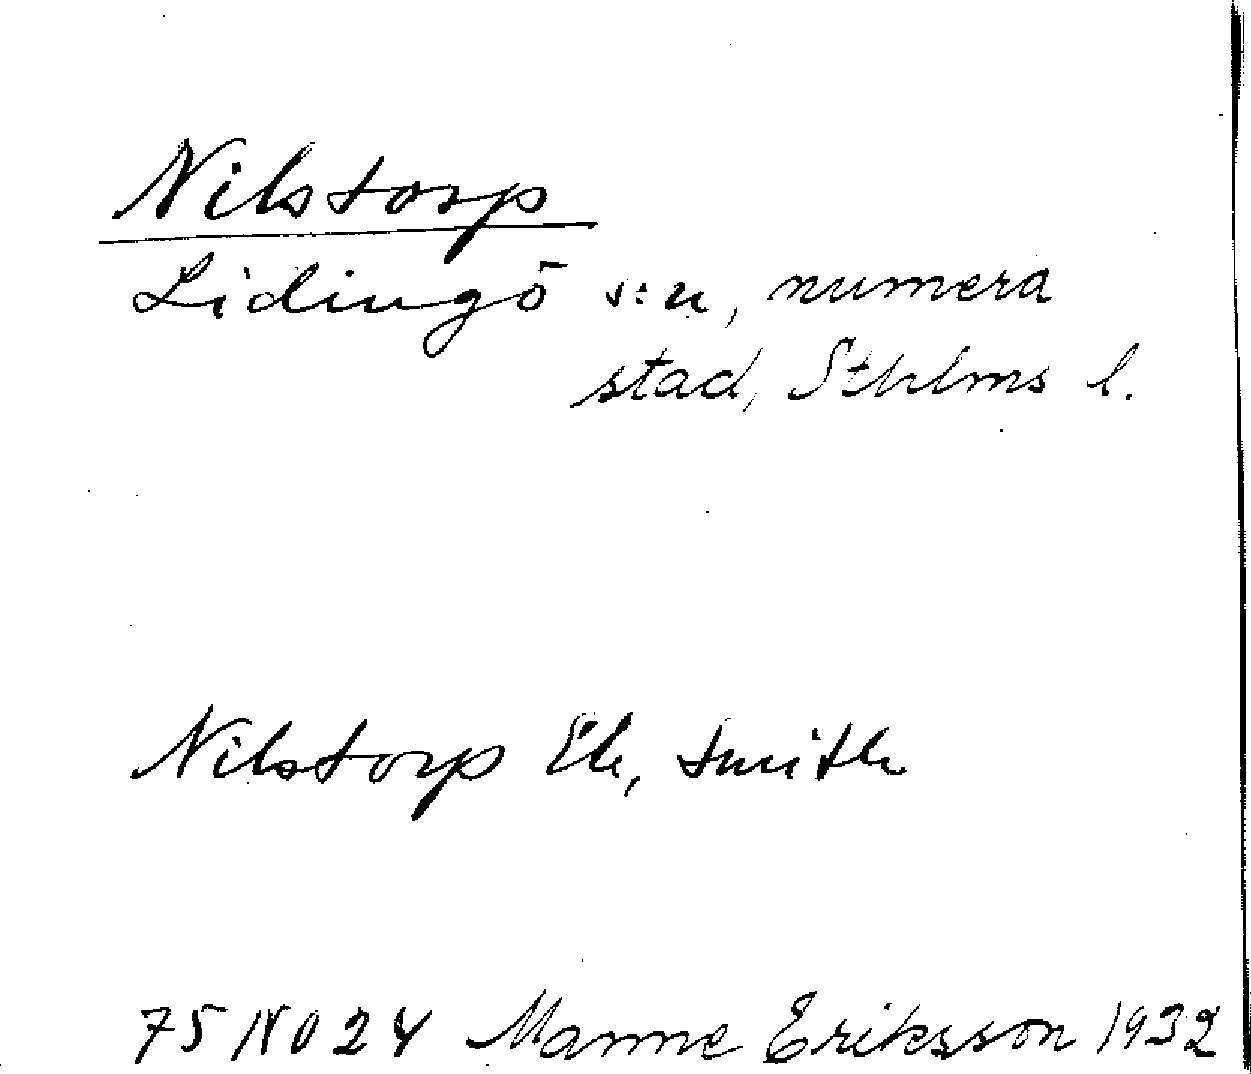 Nilstorp
Lidingö s:n, numera
stad, Sthlms l.
Nilstorp Ek, Smith
75 NO 24 Manne Eriksson 1932